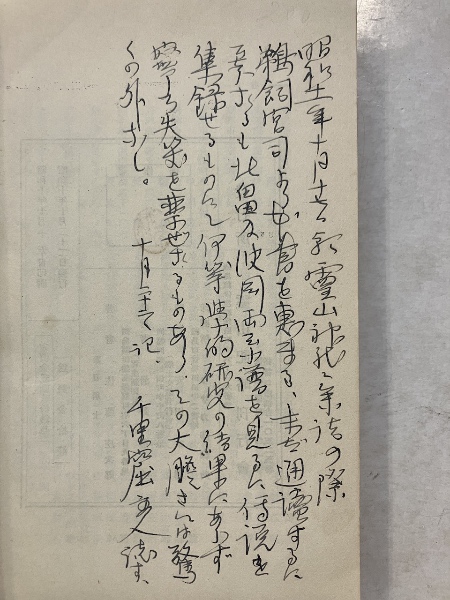 昭和十一年十月十七日霊山神社ニ参詣の際
鵜飼宮司より此書を恵まる、未だ通読するに
至らざるも北畠及波岡両系譜を見るに伝説を
集録せるものにて何等史的研究の結果にあらず
噴る失笑を禁ぜざるものあり、その大胆さには驚
くの外なし。
十月二十七日記、
千里窟主人誌す、